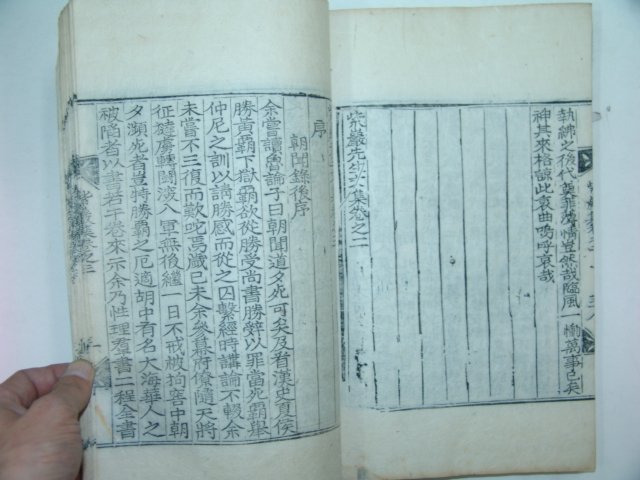 執紼之後代奠罪隆情豈然哉臨風一慟萬事已矣
神其來格諒此哀曲嗚呼哀哉
紫巖先生文集卷之二
序
朝聞錄後序
余嘗讀魯論子曰朝聞道夕死可矣及看漢史夏侯
勝黃霸下獄霸欲從勝受尚書勝辭以罪當死霸舉
仲尼之訓以請勝感而從之囚繫經時講論不輟余
未嘗不三復而歎咜焉歲己未余參幕府僚隨天將
征建虜轉鬪深入軍無後繼一日不戒被拘窖中朝
夕瀕死者豈特勝霸之厄適胡中有名大海華人之
被陷者以書若干卷來示余乃性理羣書二程全書